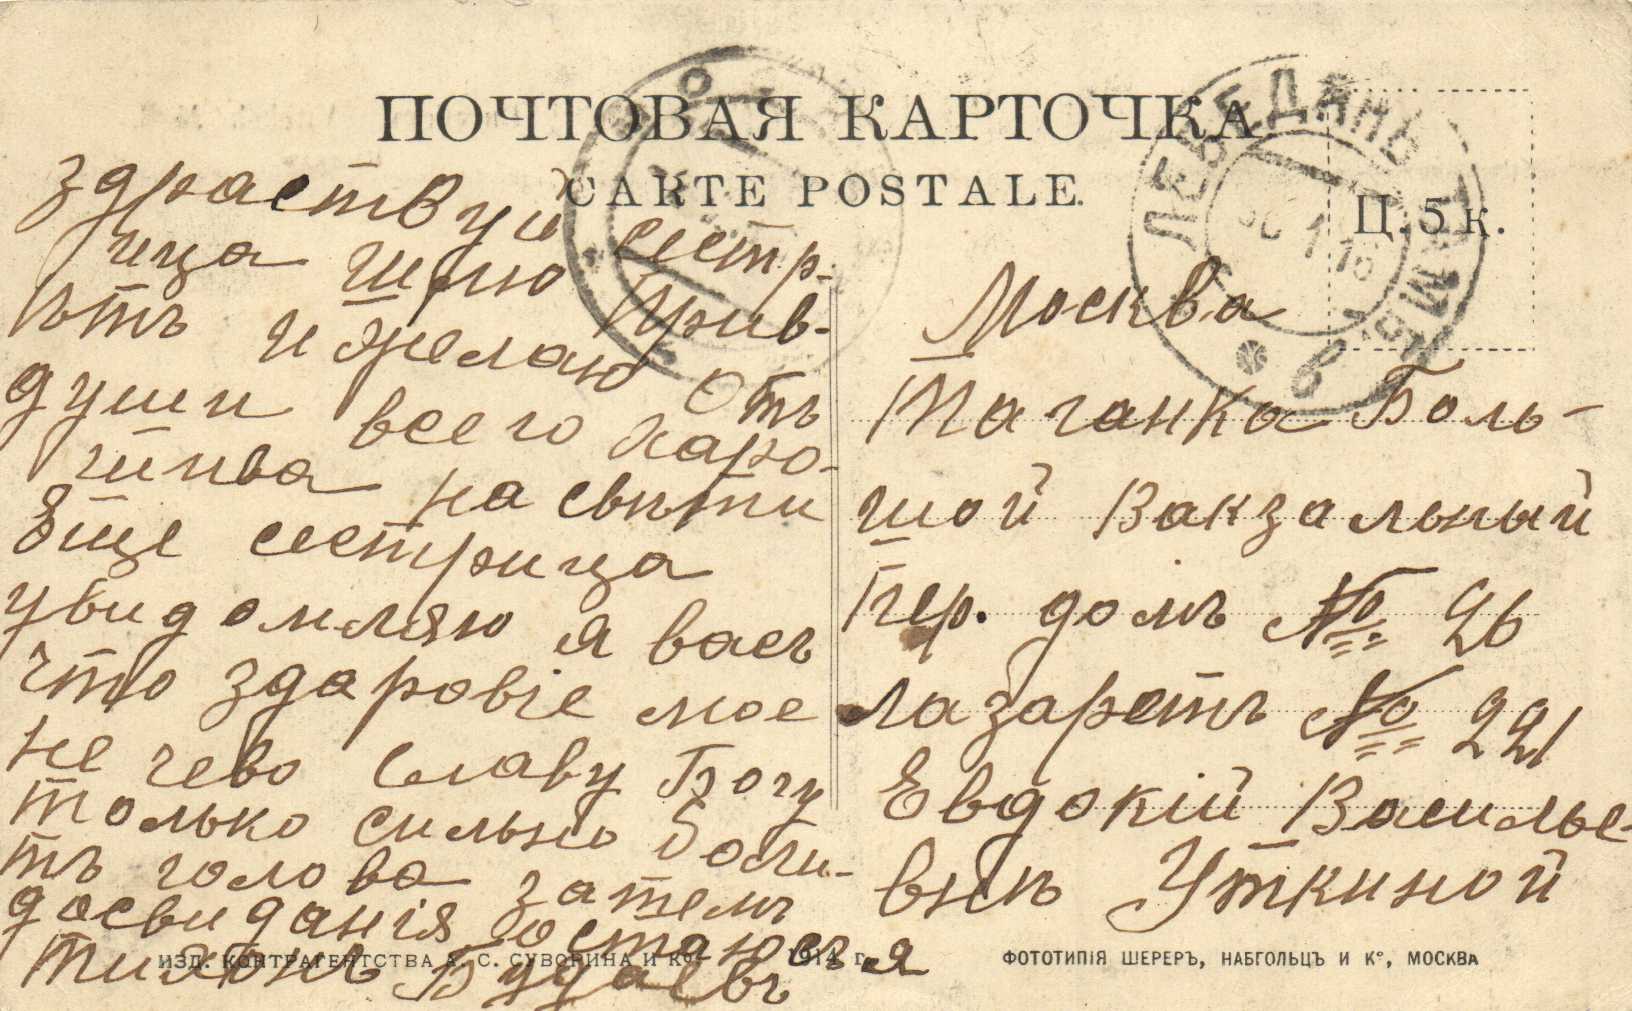 ПОЧТОВАЯ КАРТОЧКА
CARTE POSTALE.
Ц. 5 к.
ЛЕБЕДЯНЬ ТАМБ.
здраствуй сестр-
ица шлю Прив-
ѣтъ и желаю Отъ
души всего харо-
шива на свѣти
Еще сестрица
увидомляю я васъ
что здаровіе мое
не чево Славу Богу
только сильно боли-
тъ голова затемъ
досвиданія остаюсъ я
Тихонъ Будаевъ
Москва
Таганка Боль-
шой Вакзальный
Пер. домъ № 26
Лазаретъ № 221
Евдокій Василье-
внѣ Уткиной
ИЗД. КОНТРАГЕНТСТВА А. С. СУВОРИНА И Кº 1914 г.
ФОТОТИПІЯ ШЕРЕРЪ, НАБГОЛЬЦЪ И Кº, МОСКВА